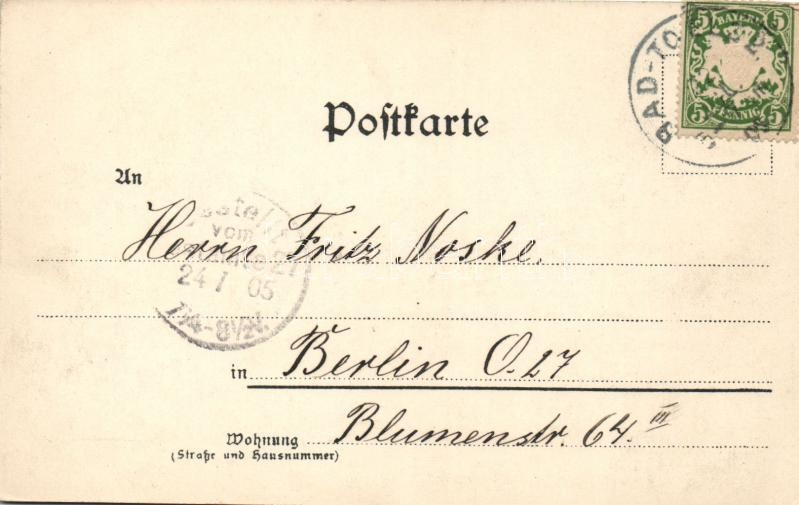 5 BAYERN 5
5 PFENNIG 5
BAD-TÖ
Postkarte
An
Bestellt
vom
27
24/7 05
7¼-8½
Herrn Fritz Noske.
in Berlin O. 27
Wohnung Blumenstr. 64. III
(Straße und Hausnummer)